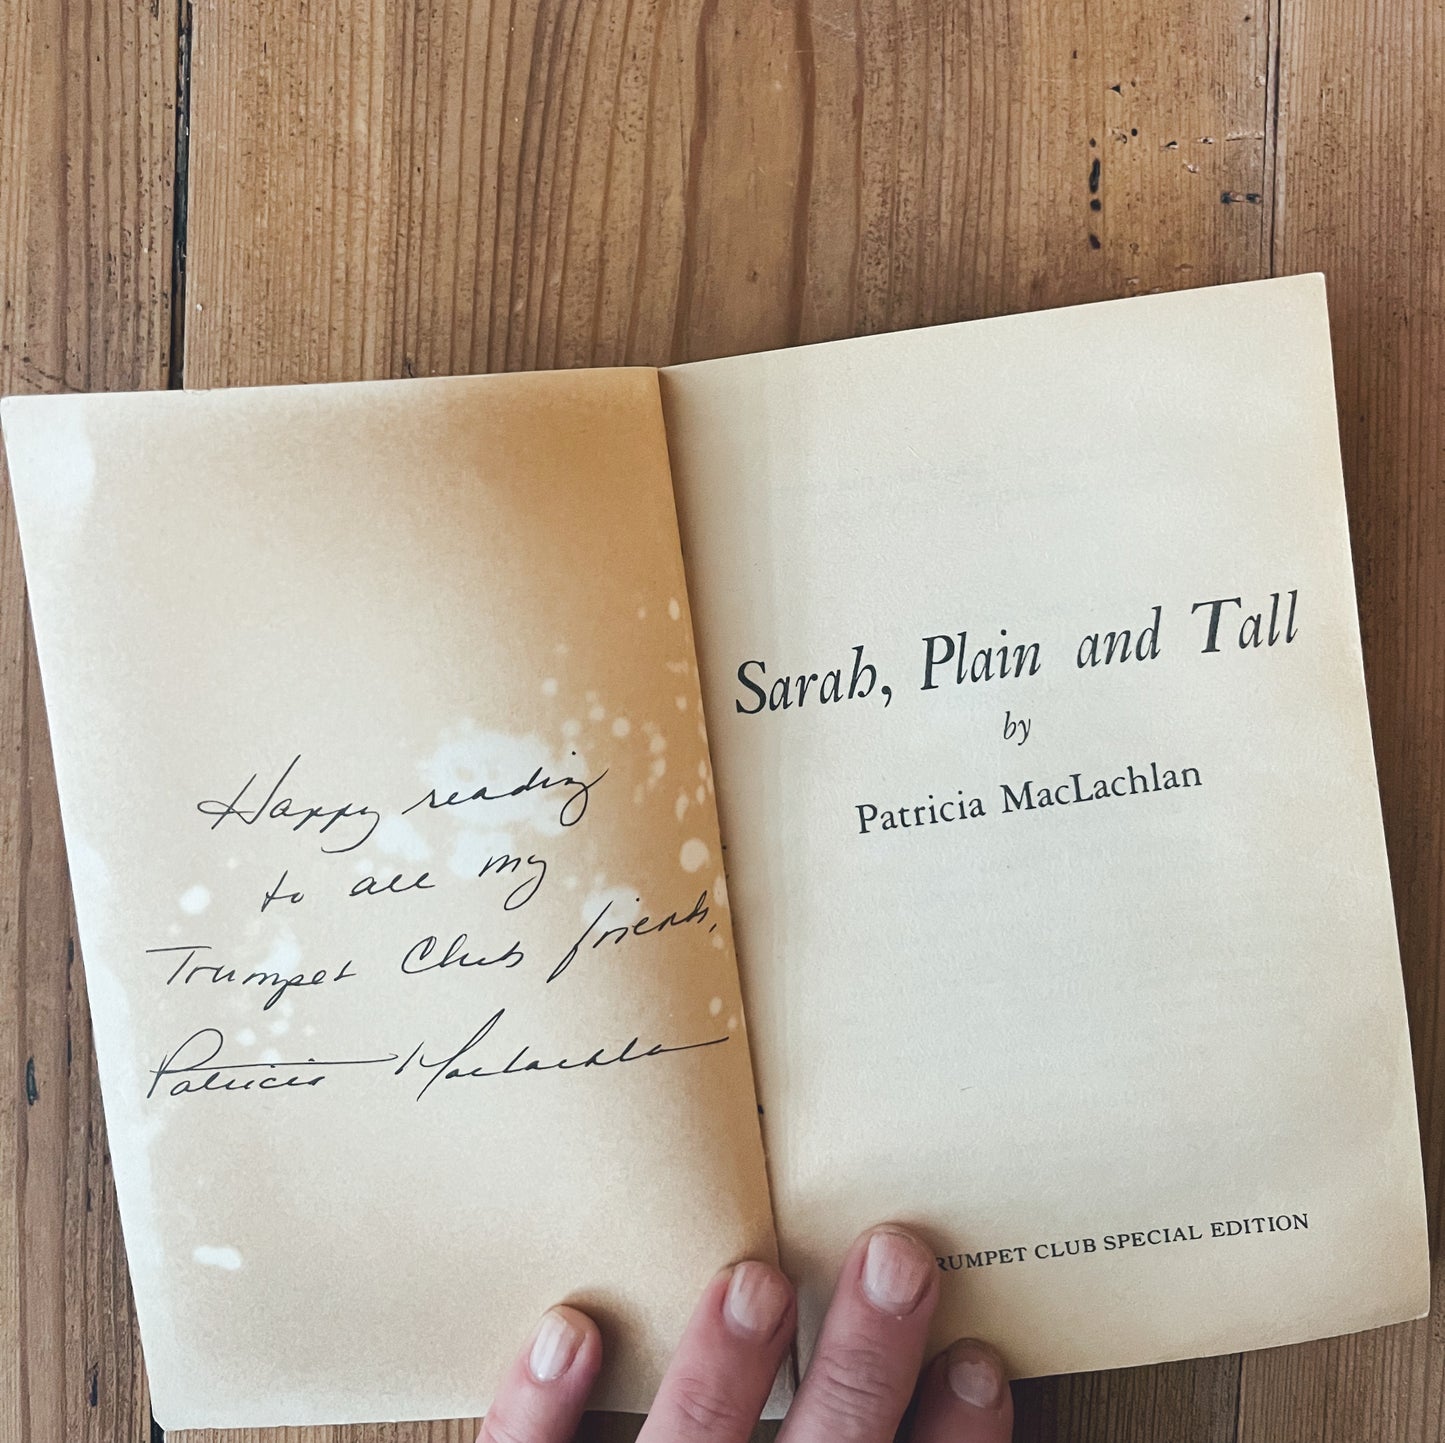 Happy reading
to all my
Trumpet Club friends,
Patricia MacLachlan
Sarah, Plain and Tall
by
Patricia MacLachlan
RUMPET CLUB SPECIAL EDITION